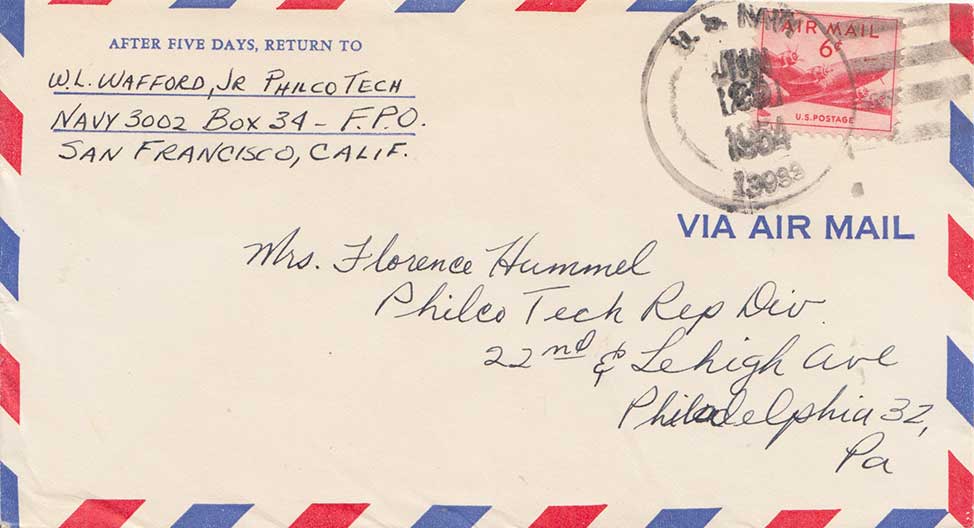 AFTER FIVE DAYS, RETURN TO
W.L. WAFFORD, JR PHILCO TECH
NAVY 3002 BOX 34 - F.P.O.
SAN FRANCISCO, CALIF.
U. S. NAVY
JUN
1954
13083
AIR MAIL
6¢
U.S. POSTAGE
VIA AIR MAIL
Mrs. Florence Hummel
Philco Tech Rep Div.
22nd & Lehigh Ave
Philadelphia 32,
Pa